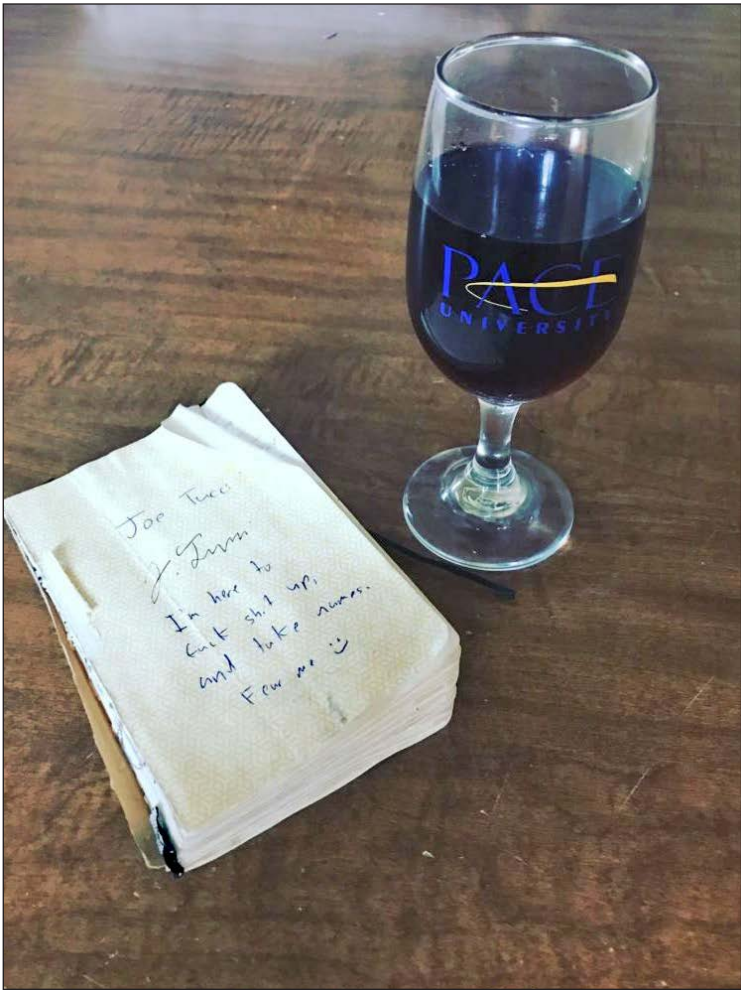 PACE
UNIVERSITY
Joe Tucci
I'm here to
fuck shit up,
and take names.
Fear me :)